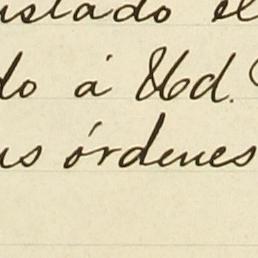 ustado el
do á Ud.
us órdenes